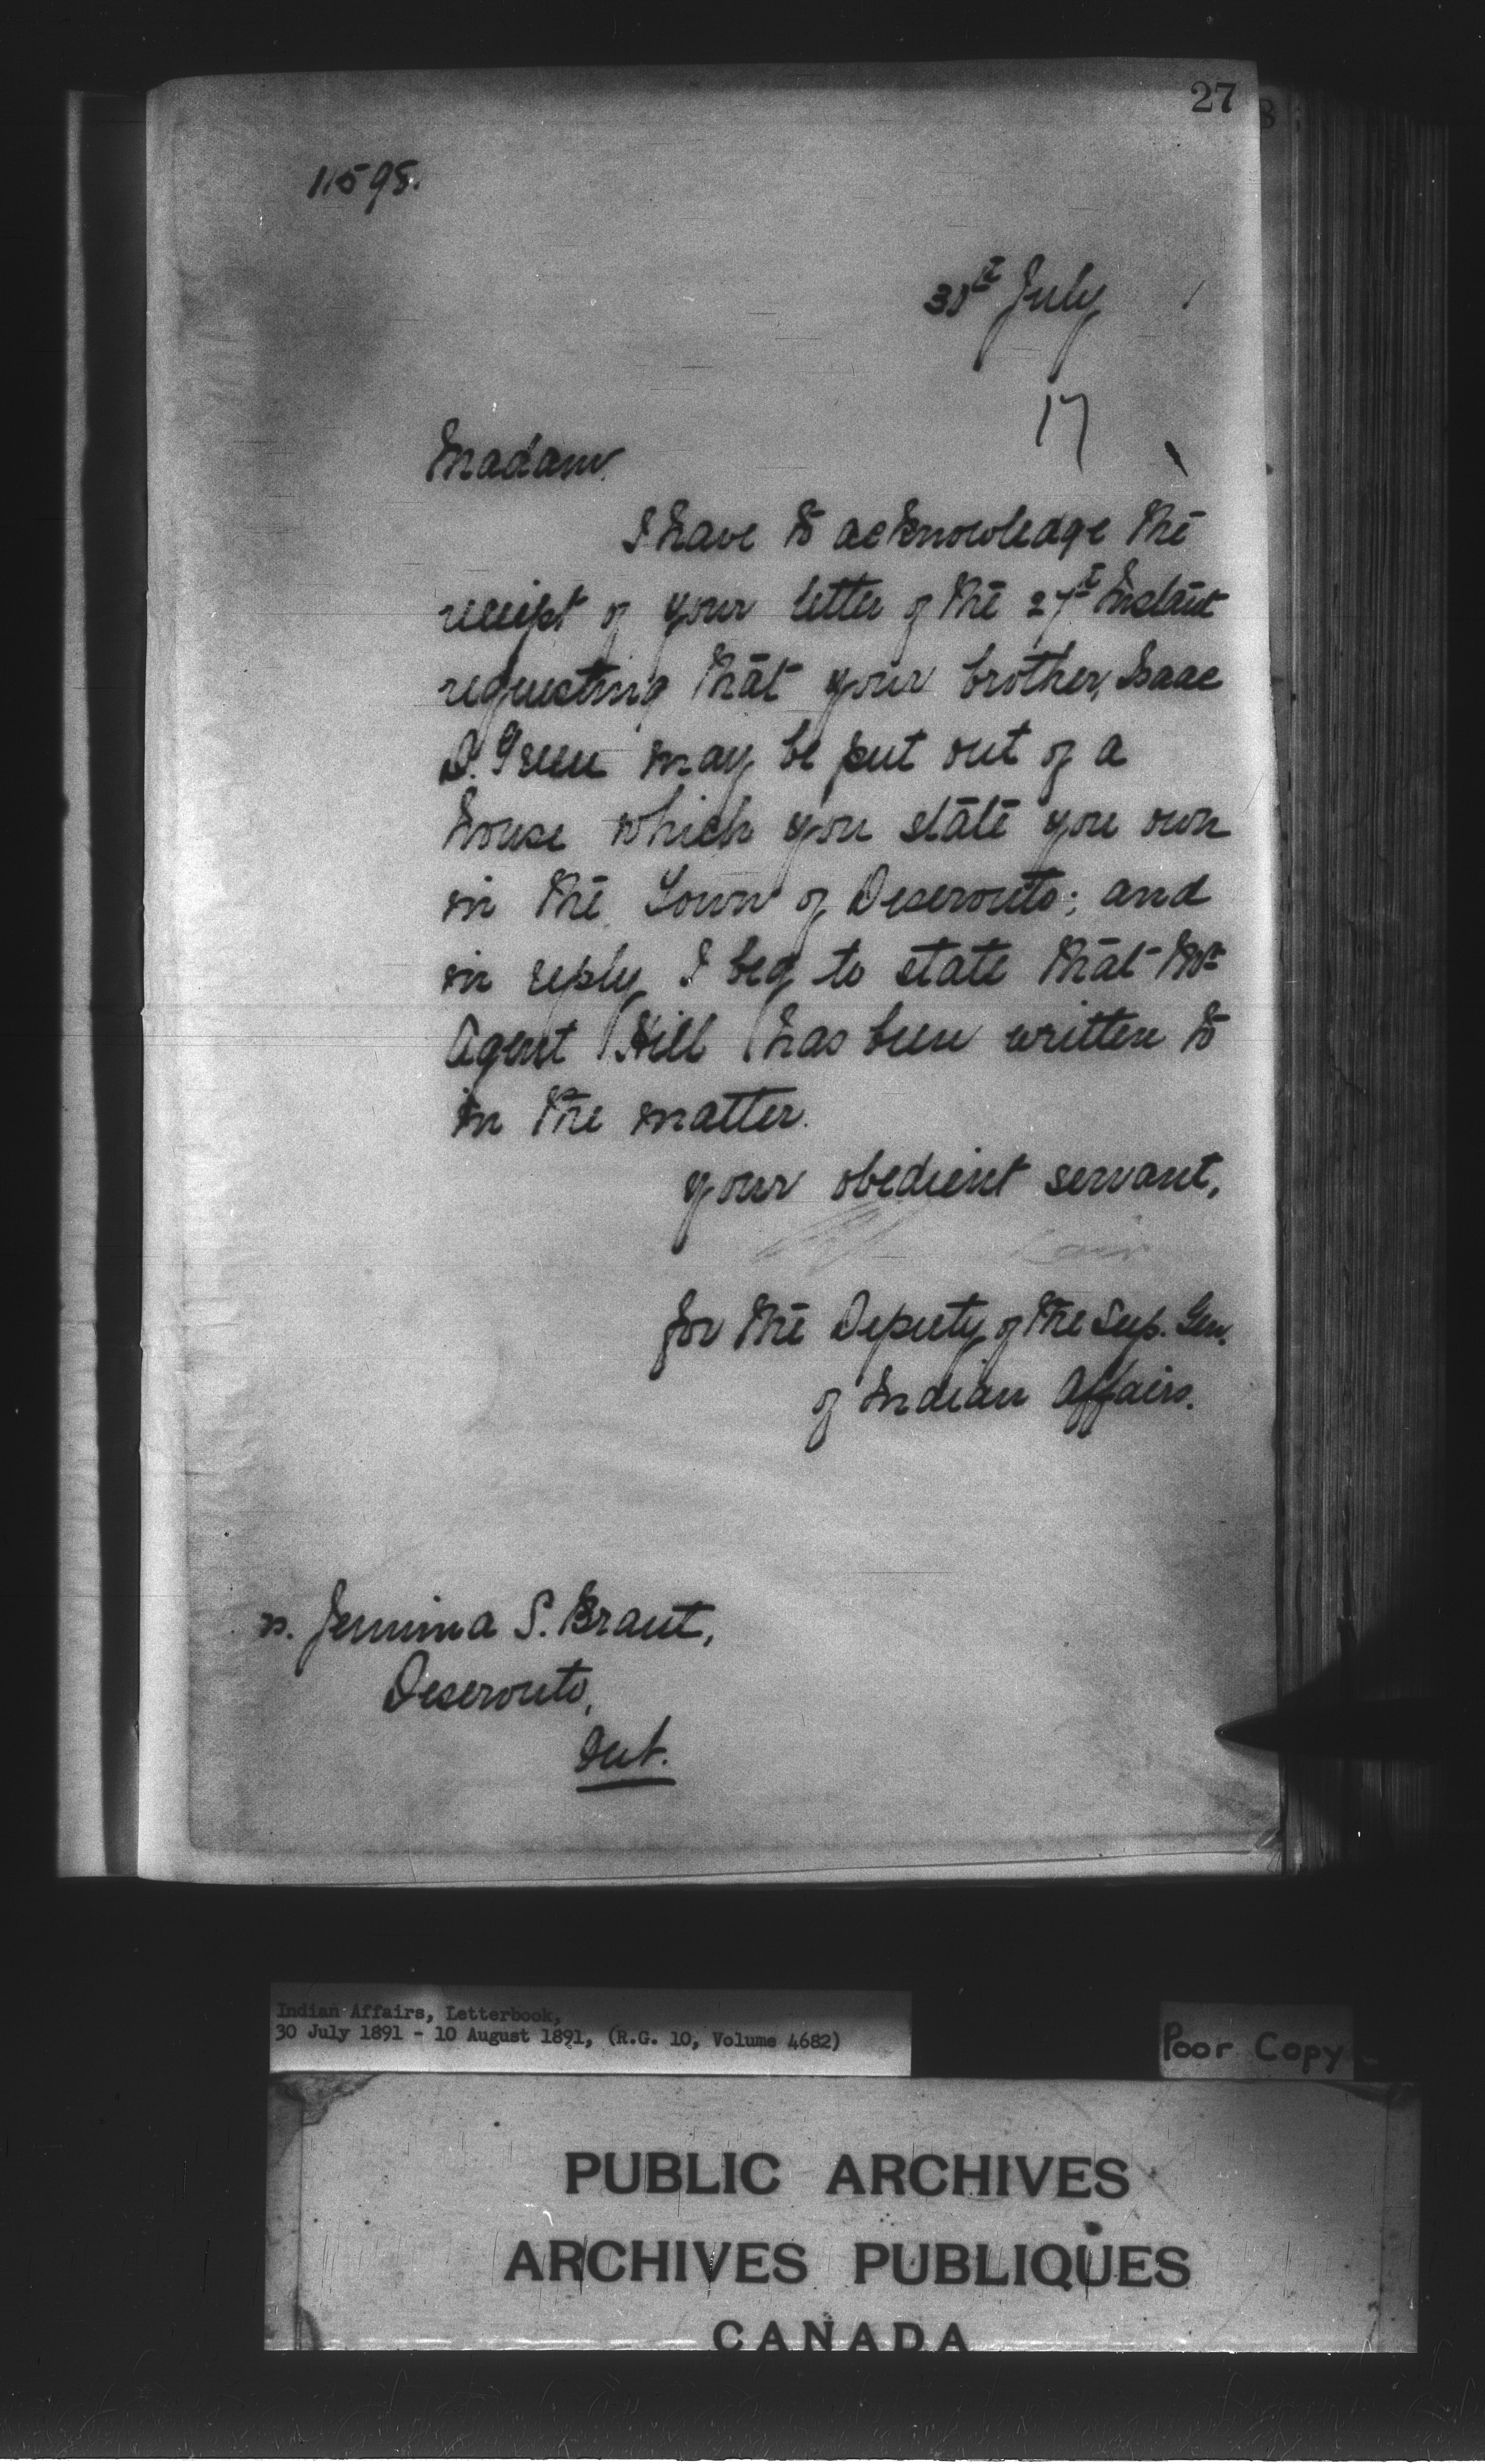 27
11598.
30th July 1
17
Madam.
I have to acknowledge the
receipt of your letter of the 27th Instant
requesting that your brother, Isaac
D. Green may be put out of a
house which you state you own
in the Town of Deseronto; and
in reply I beg to state that Mr
Agent Hill has been written to
in the matter.
your obedient servant,
for the Deputy of the Sup. Gen.
of Indian Affairs.
s. Jemima S. Brant,
Deseronto,
Ont.
Indian Affairs, Letterbook,
30 July 1891 - 10 August 1891, (R.G. 10, Volume 4682)
Poor Copy
PUBLIC ARCHIVES
ARCHIVES PUBLIQUES
CANADA